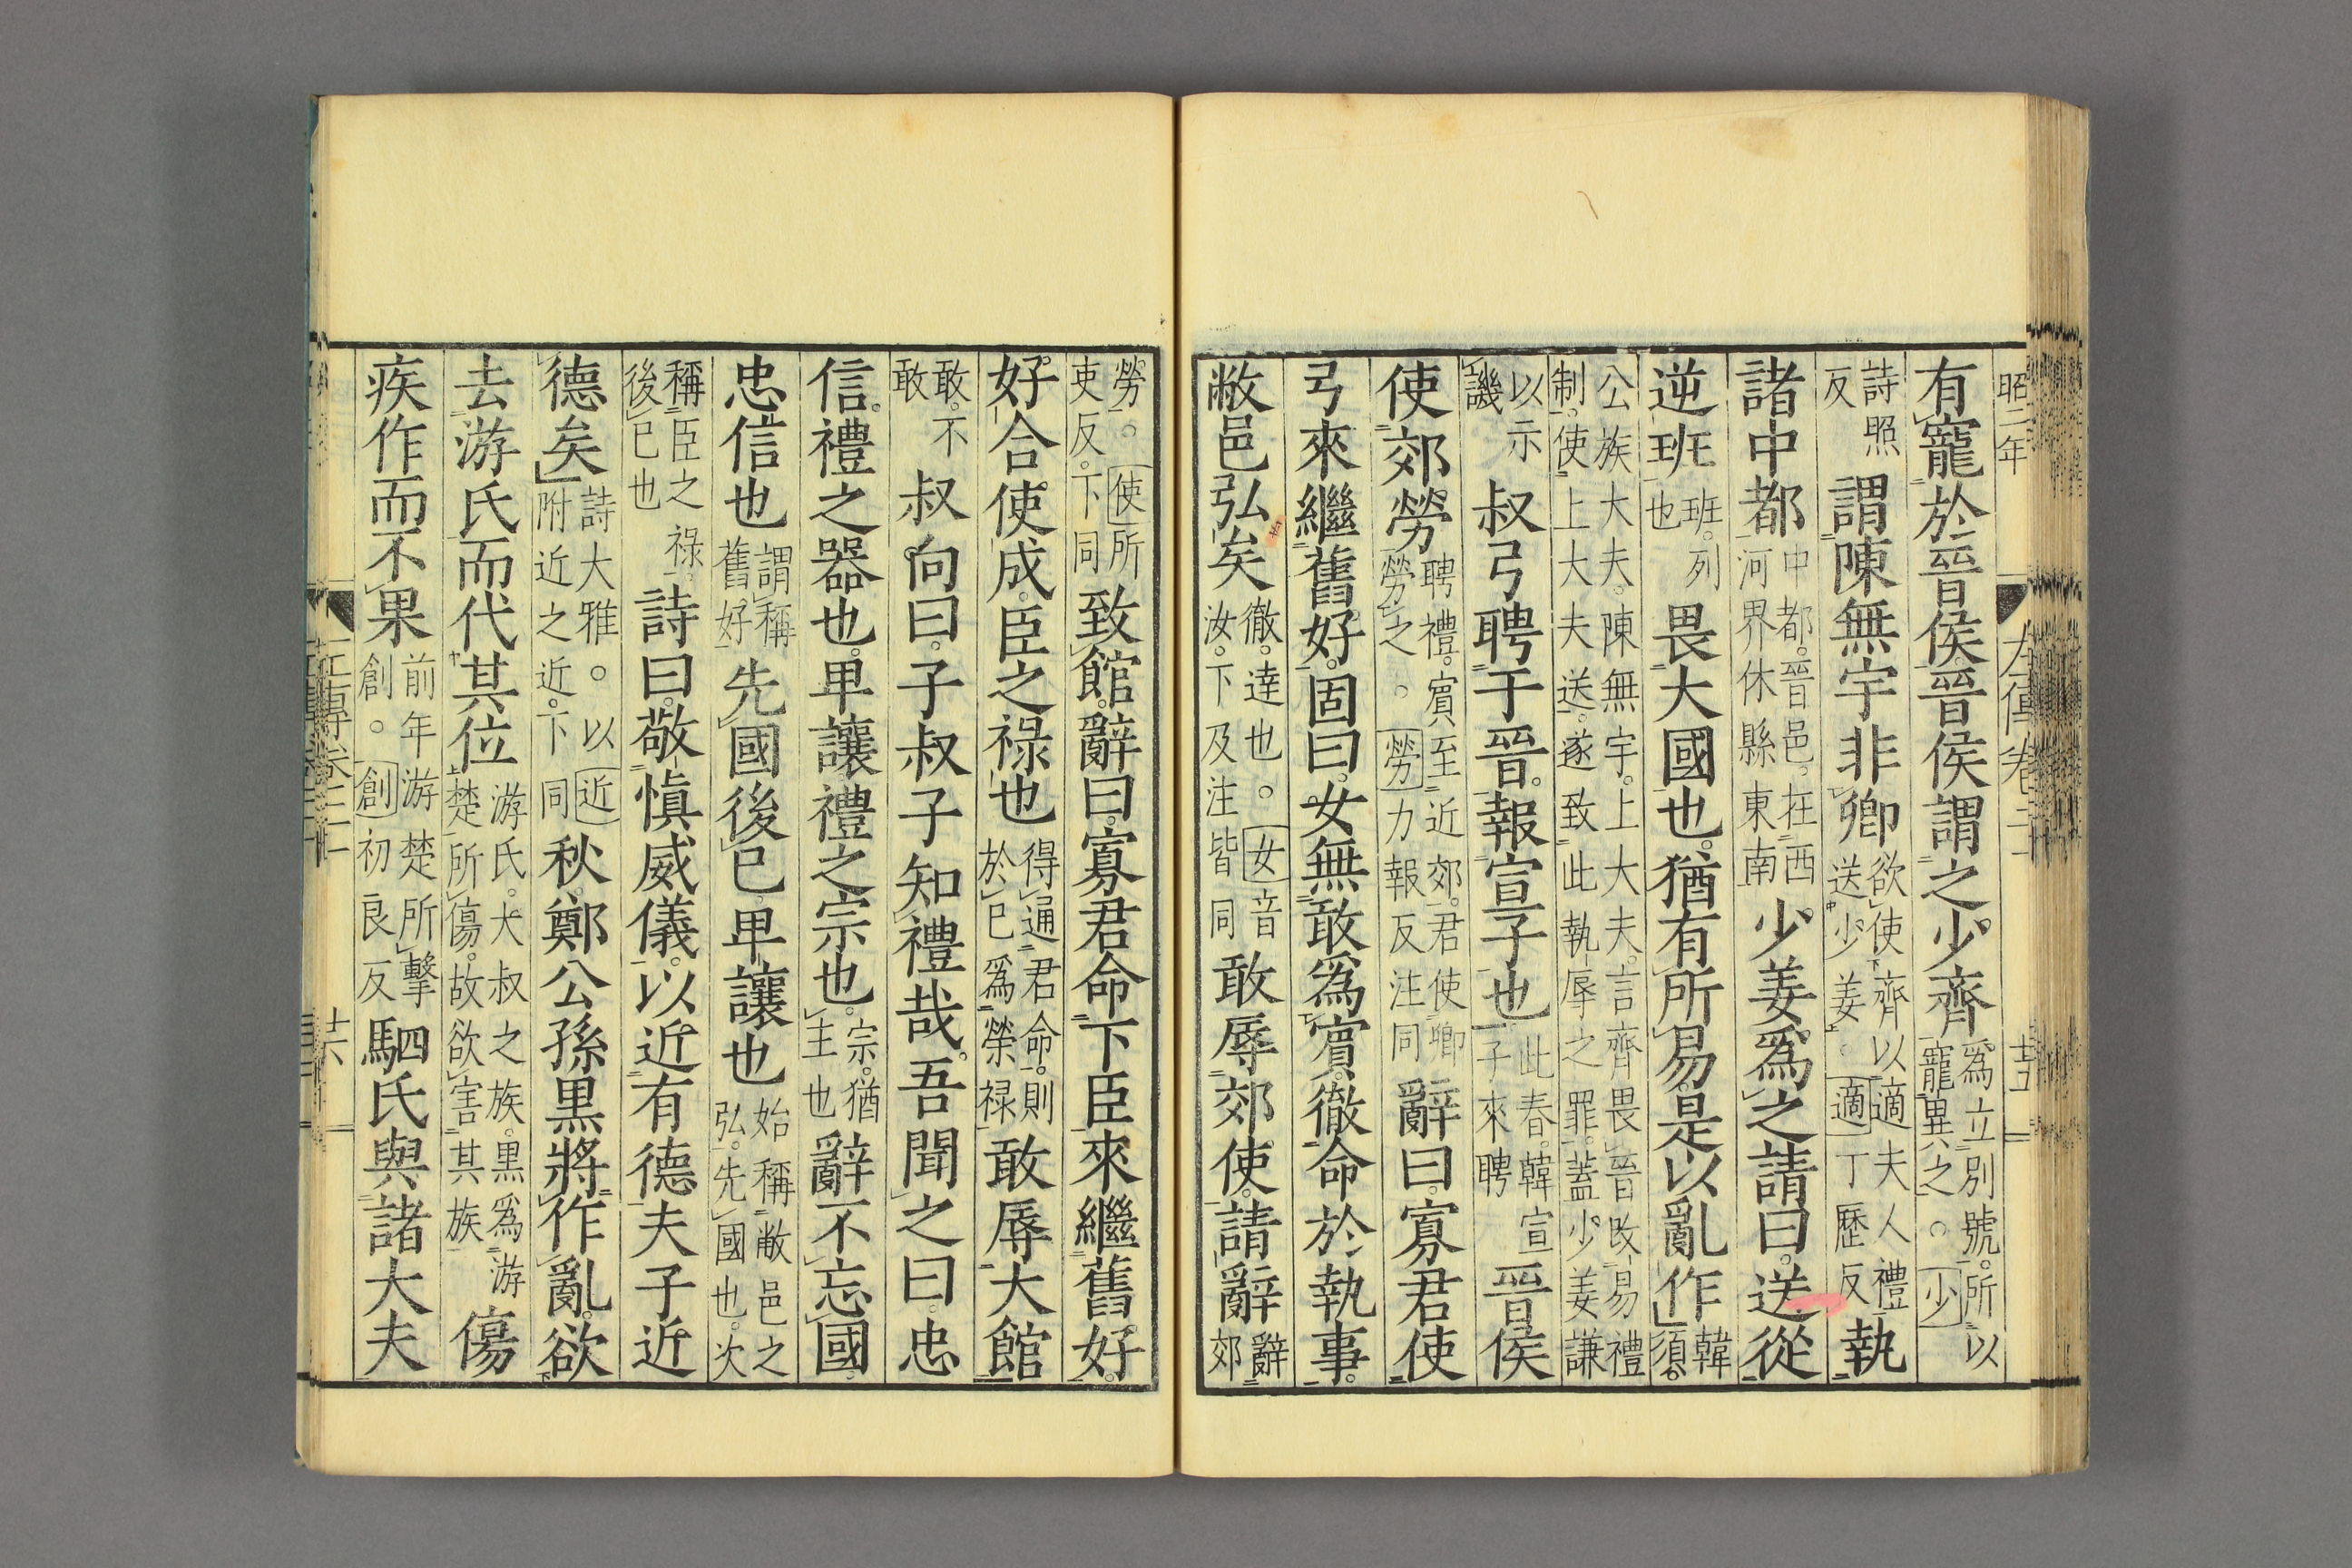 昭二年 左傳卷二十一 十五
有寵於晉侯。晉侯謂之少齊爲立別號。所以寵異之。○少
詩照反謂陳無宇非卿欲使齊以適夫人禮送少姜。○適丁歷反執
諸中都中都。晉邑。在西河界休縣東南少姜爲之請曰。送從
逆班班。列也畏大國也。猶有所易。是以亂作韓須。
公族大夫。陳無宇。上大夫。言齊畏晉改易禮制。使上大夫送。遂致此執辱之罪。蓋少姜謙
以示譏叔弓聘于晉。報宣子也此春。韓宣子來聘晉侯
使郊勞聘禮。賓至近郊。君使卿勞之。○勞力報反注同辭曰。寡君使
弓來繼舊好。固曰。女無敢爲賓。徹命於執事。
敝邑弘矣徹。達也。○女音汝。下及注皆同敢辱郊使。請辭辭郊
勞。○使所吏反。下同致館。辭曰。寡君命下臣來繼舊好。
好合使成。臣之祿也得通君命。則於已爲榮祿敢辱大館
敢。不敢叔向曰。子叔子知禮哉。吾聞之曰。忠
信。禮之器也。卑讓。禮之宗也。宗。猶主也辭不忘國。
忠信也謂稱舊好先國後已。卑讓也始稱敝邑之弘。先國也。次
稱臣之祿。後已也詩曰。敬愼威儀。以近有德。夫子近
德矣詩大雅。○以近附近之近。下同秋。鄭公孫黑將作亂。欲
去游氏而代其位游氏。大叔之族。黑爲游楚所傷。故欲害其族傷
疾作而不果前年游楚所擊創。○創初良反駟氏與諸大夫
左傳卷二十一 十六